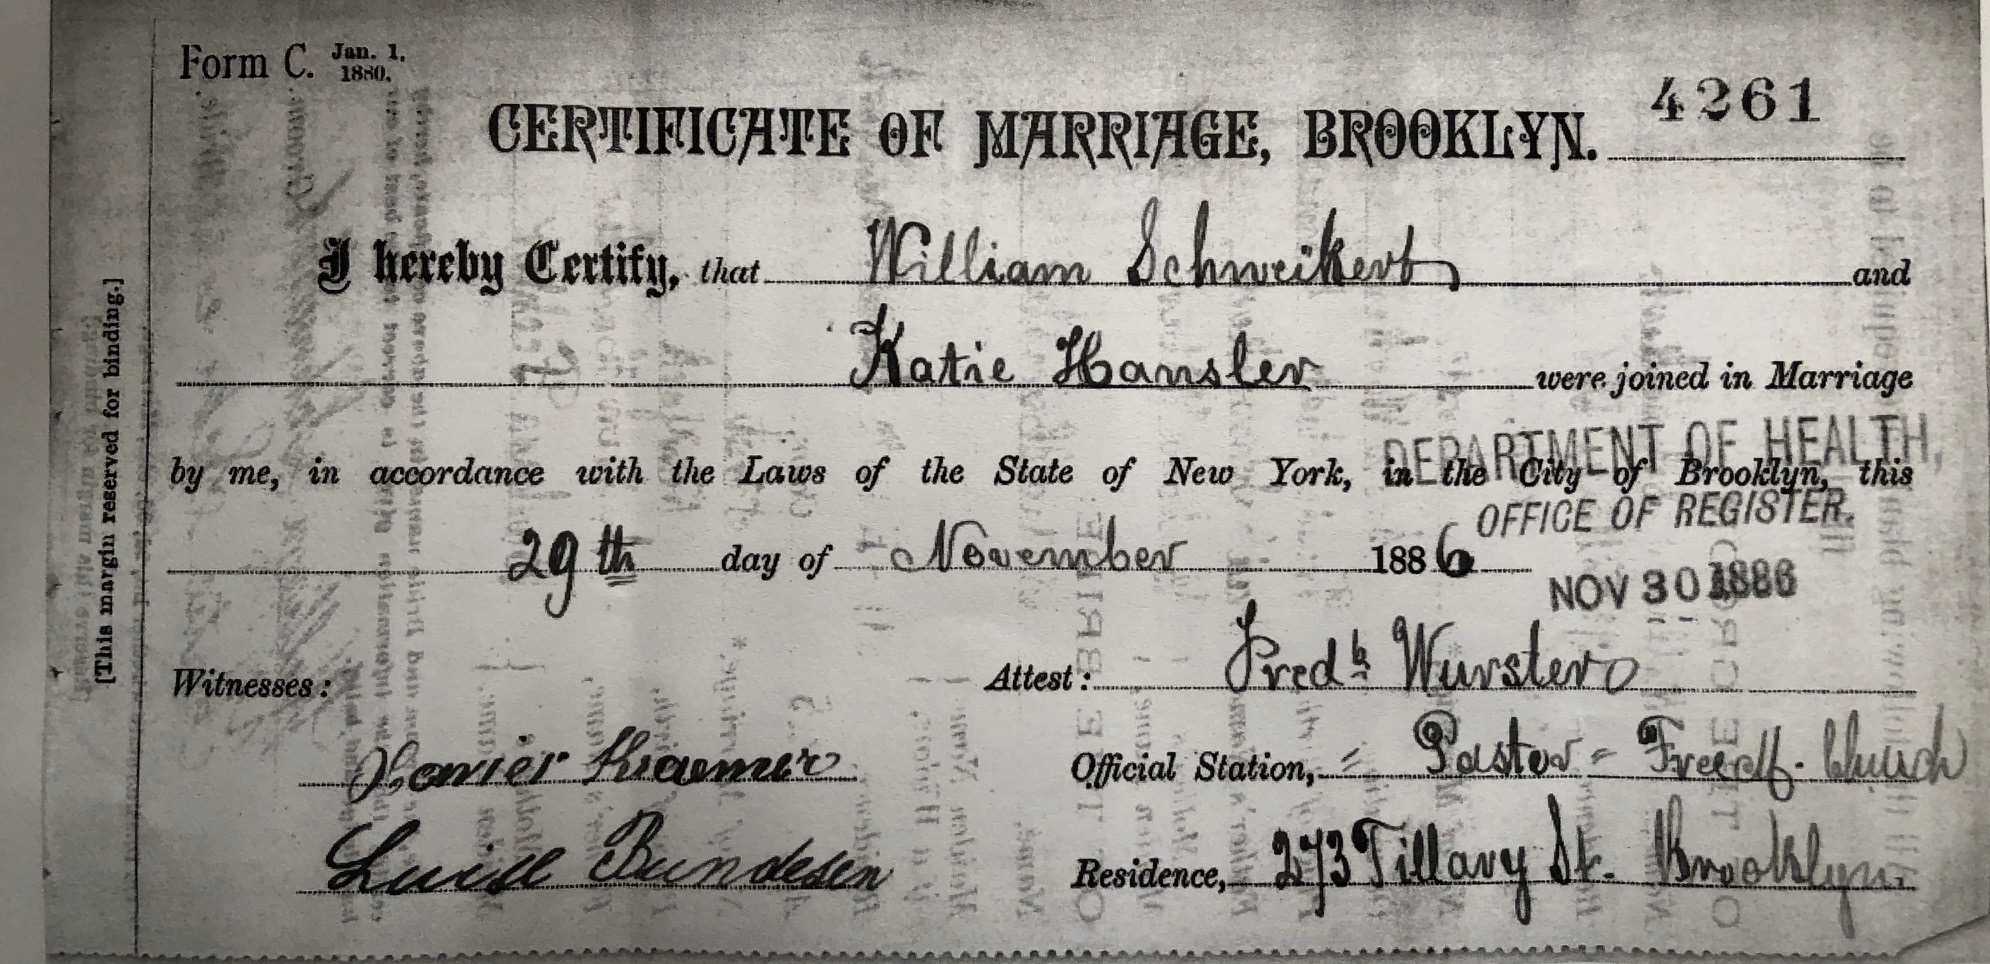 Form C. Jan. 1, 1880.
4261
CERTIFICATE OF MARRIAGE, BROOKLYN.
I hereby Certify, that William Schweikert and
Katie Hansler were joined in Marriage
by me, in accordance with the Laws of the State of New York, in the City of Brooklyn, this
DEPARTMENT OF HEALTH,
OFFICE OF REGISTER.
29th day of November 1886
NOV 30 1886
Witnesses:
Attest: Fredk Wurster
Xavier Kraemer
Official Station, Pastor Church
Luise Bundesen
Residence, 273 Tillary St. Brooklyn.
[This margin reserved for binding.]